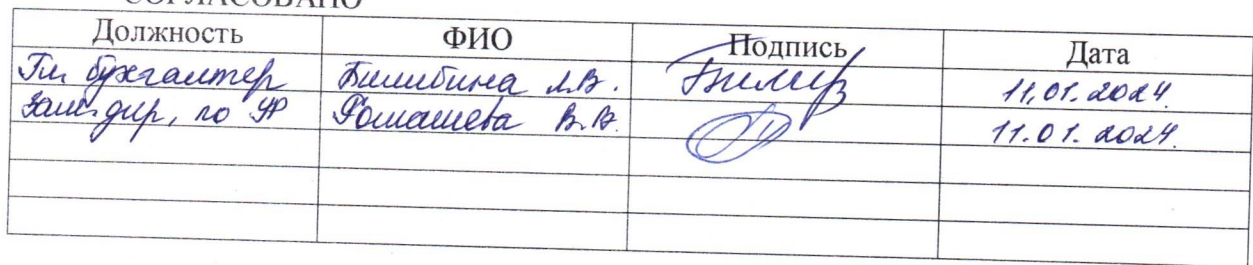 СОГЛАСОВАНО
Должность ФИО Подпись Дата
Гл. бухгалтер Билибина Л.В. 11.01.2024
Зам. дир. по В.В. 11.01.2024.